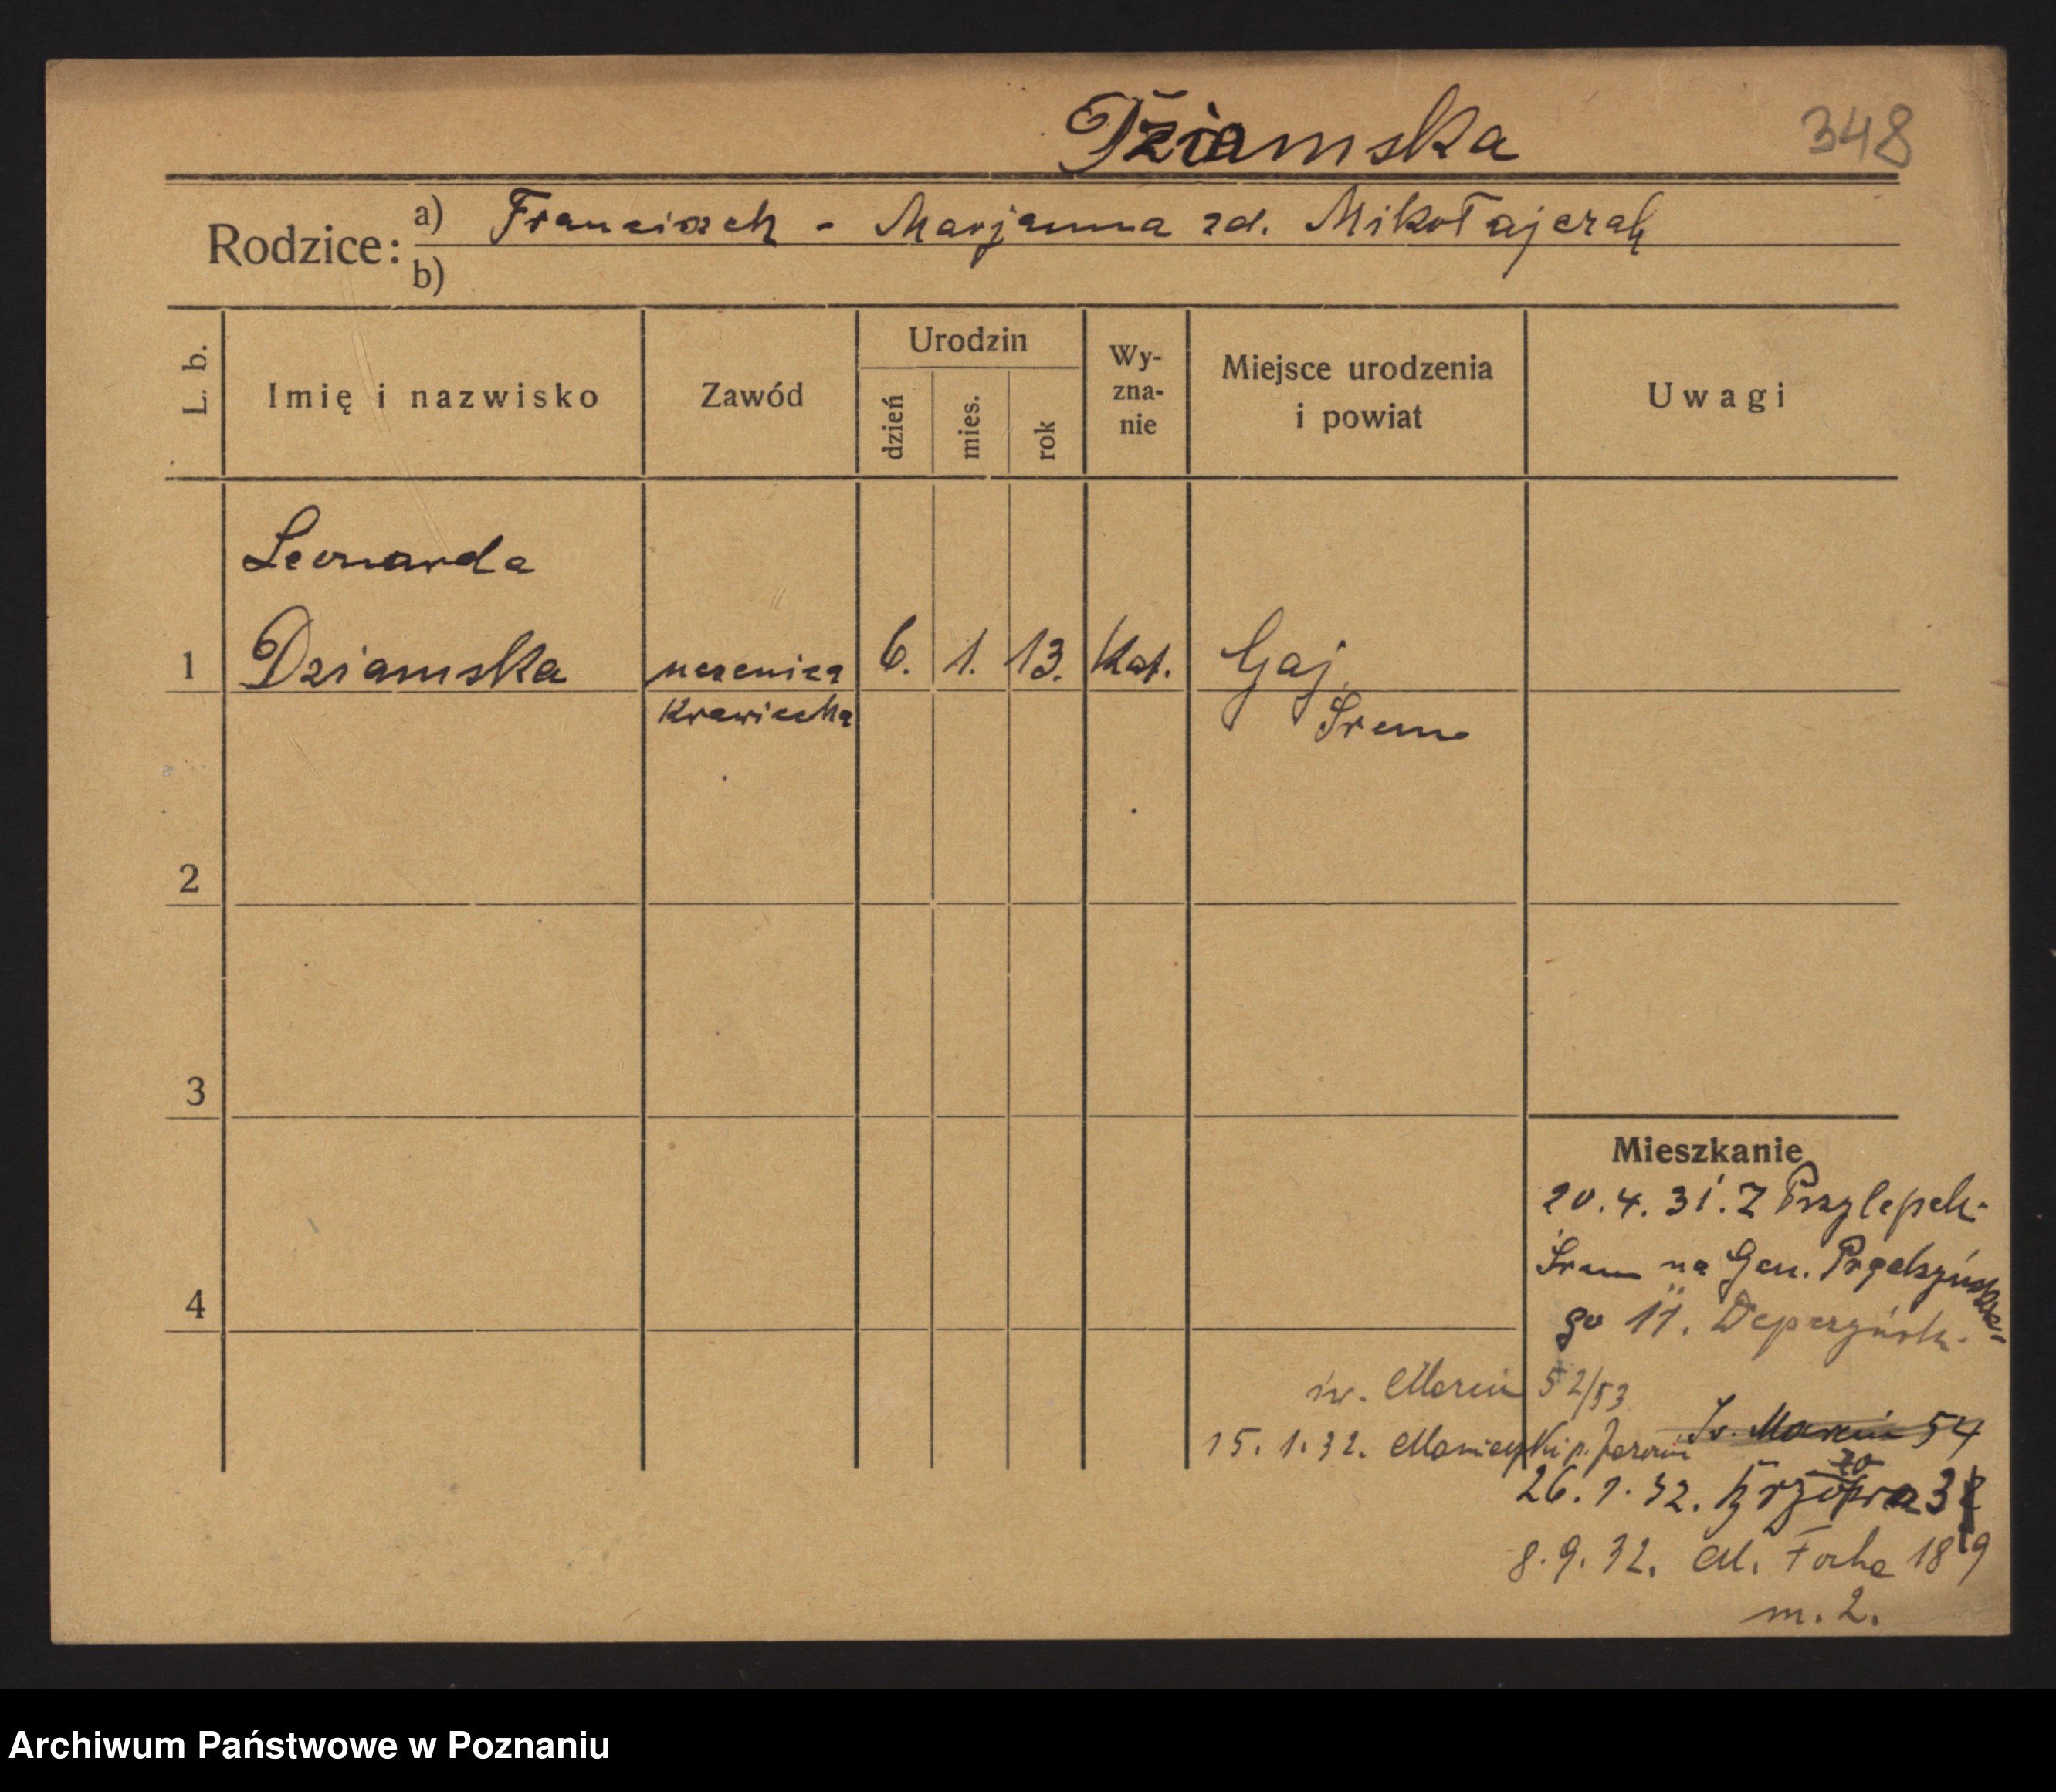 Dziamska
348
Rodzice: a) Franciszek - Marjanna zd. Mikołajczak
b)
L. b.
Imię i nazwisko
Zawód
Urodzin
dzień
mies.
rok
Wy-
zna-
nie
Miejsce urodzenia
i powiat
Uwagi
Leonarda
1 Dziamska uczenica 6. 1. 13. Kat. Gaj
krawiecka Śrem
2
3
Mieszkanie
20.4.31. Z Przylepek-
Śrem na Gen. Prądzyńskie-
4
go 11.
św. Marcin 52/53
Św. Marcin 54
15.1.32. Manieczki p.
26.1.32. 3
8.9.32. M. Focha 189
m. 2.
Archiwum Państwowe w Poznaniu